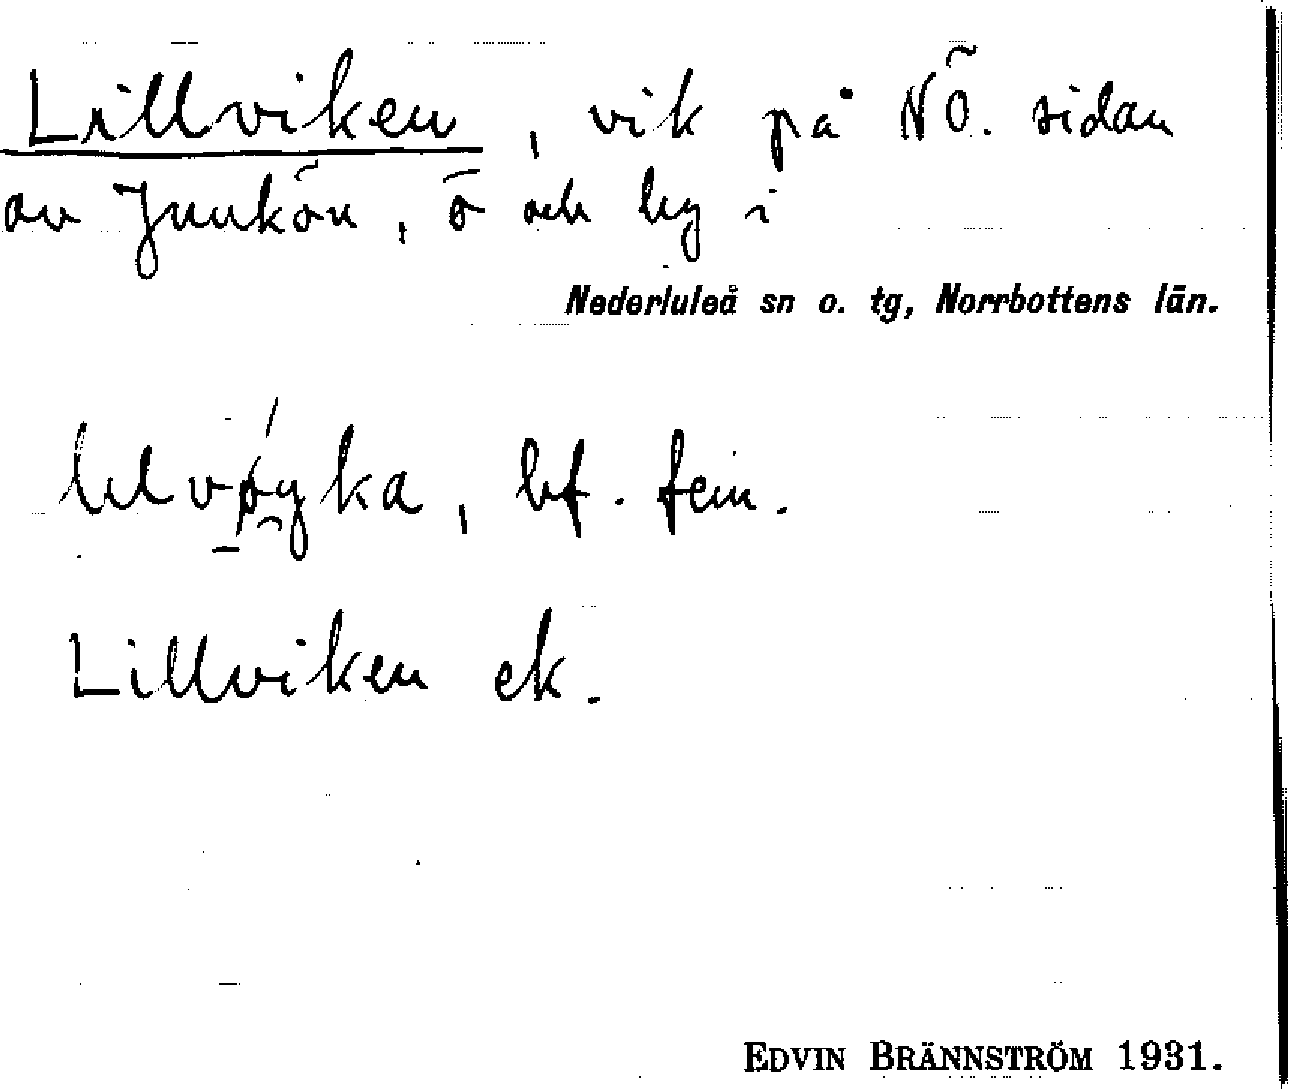 Lillviken, vik på NÖ. sidan
av Junkön, ö och by i
Nederluleå sn o. tg, Norrbottens län.
bf. fem.
Lillviken ek.
EDVIN BRÄNNSTRÖM 1931.